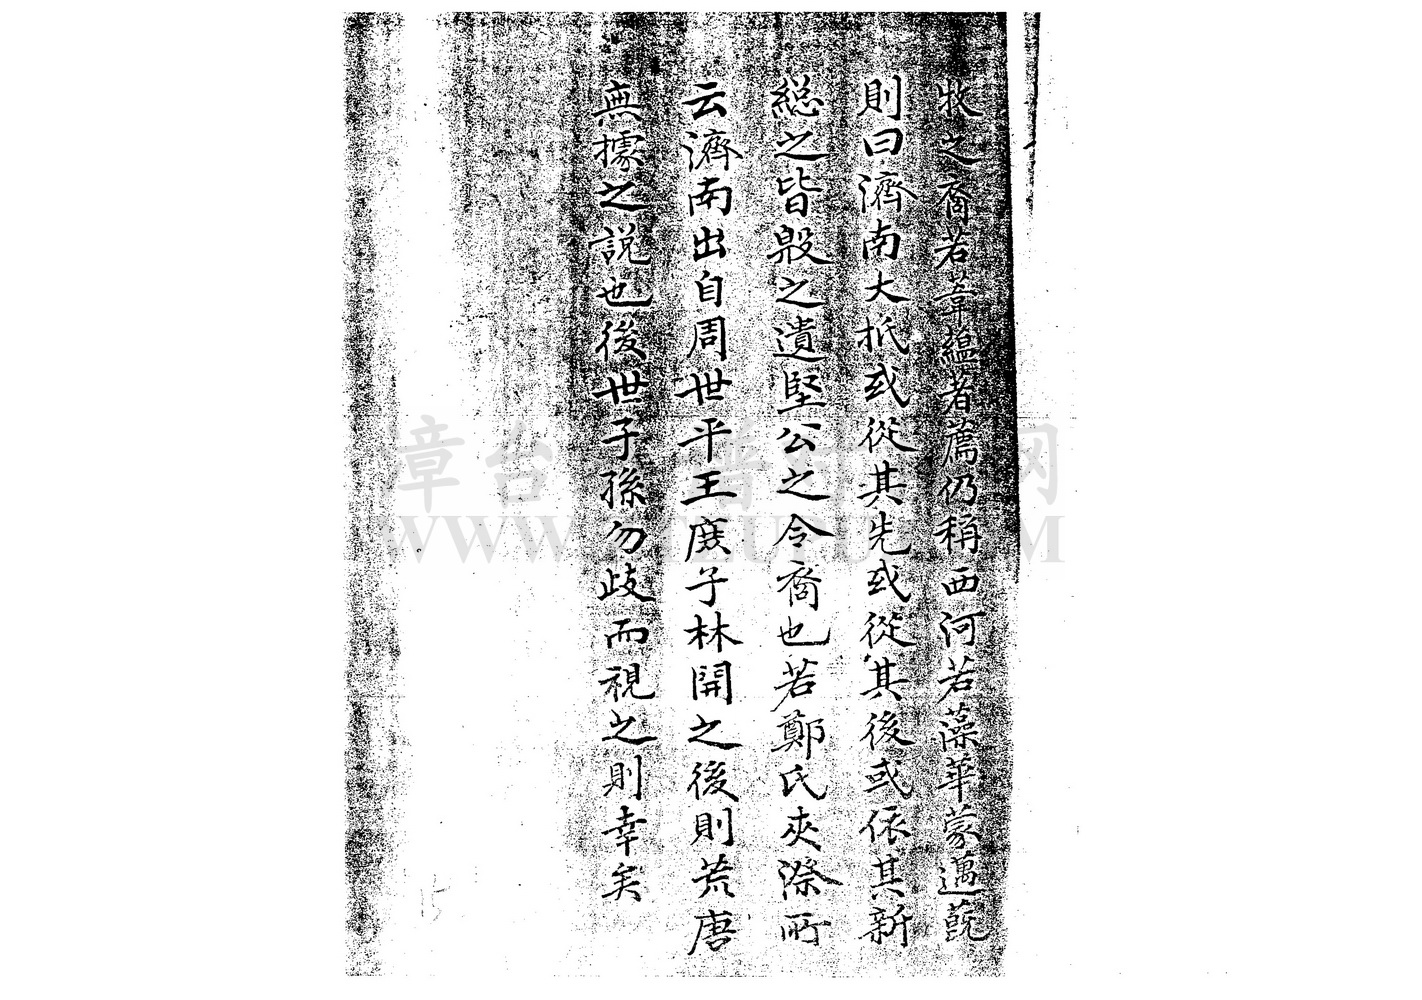 牧之裔若葦蘊著薦仍稱西河若藻華蒙邁蔇
則曰濟南大抵或從其先或從其後或依其新
総之皆殷之遺堅公之令裔也若鄭氏夾漈所
云濟南出自周世平王庶子林開之後則荒唐
無據之說也後世子孫勿歧而視之則幸矣
章台 譜 网
WWW. UPU. M
15